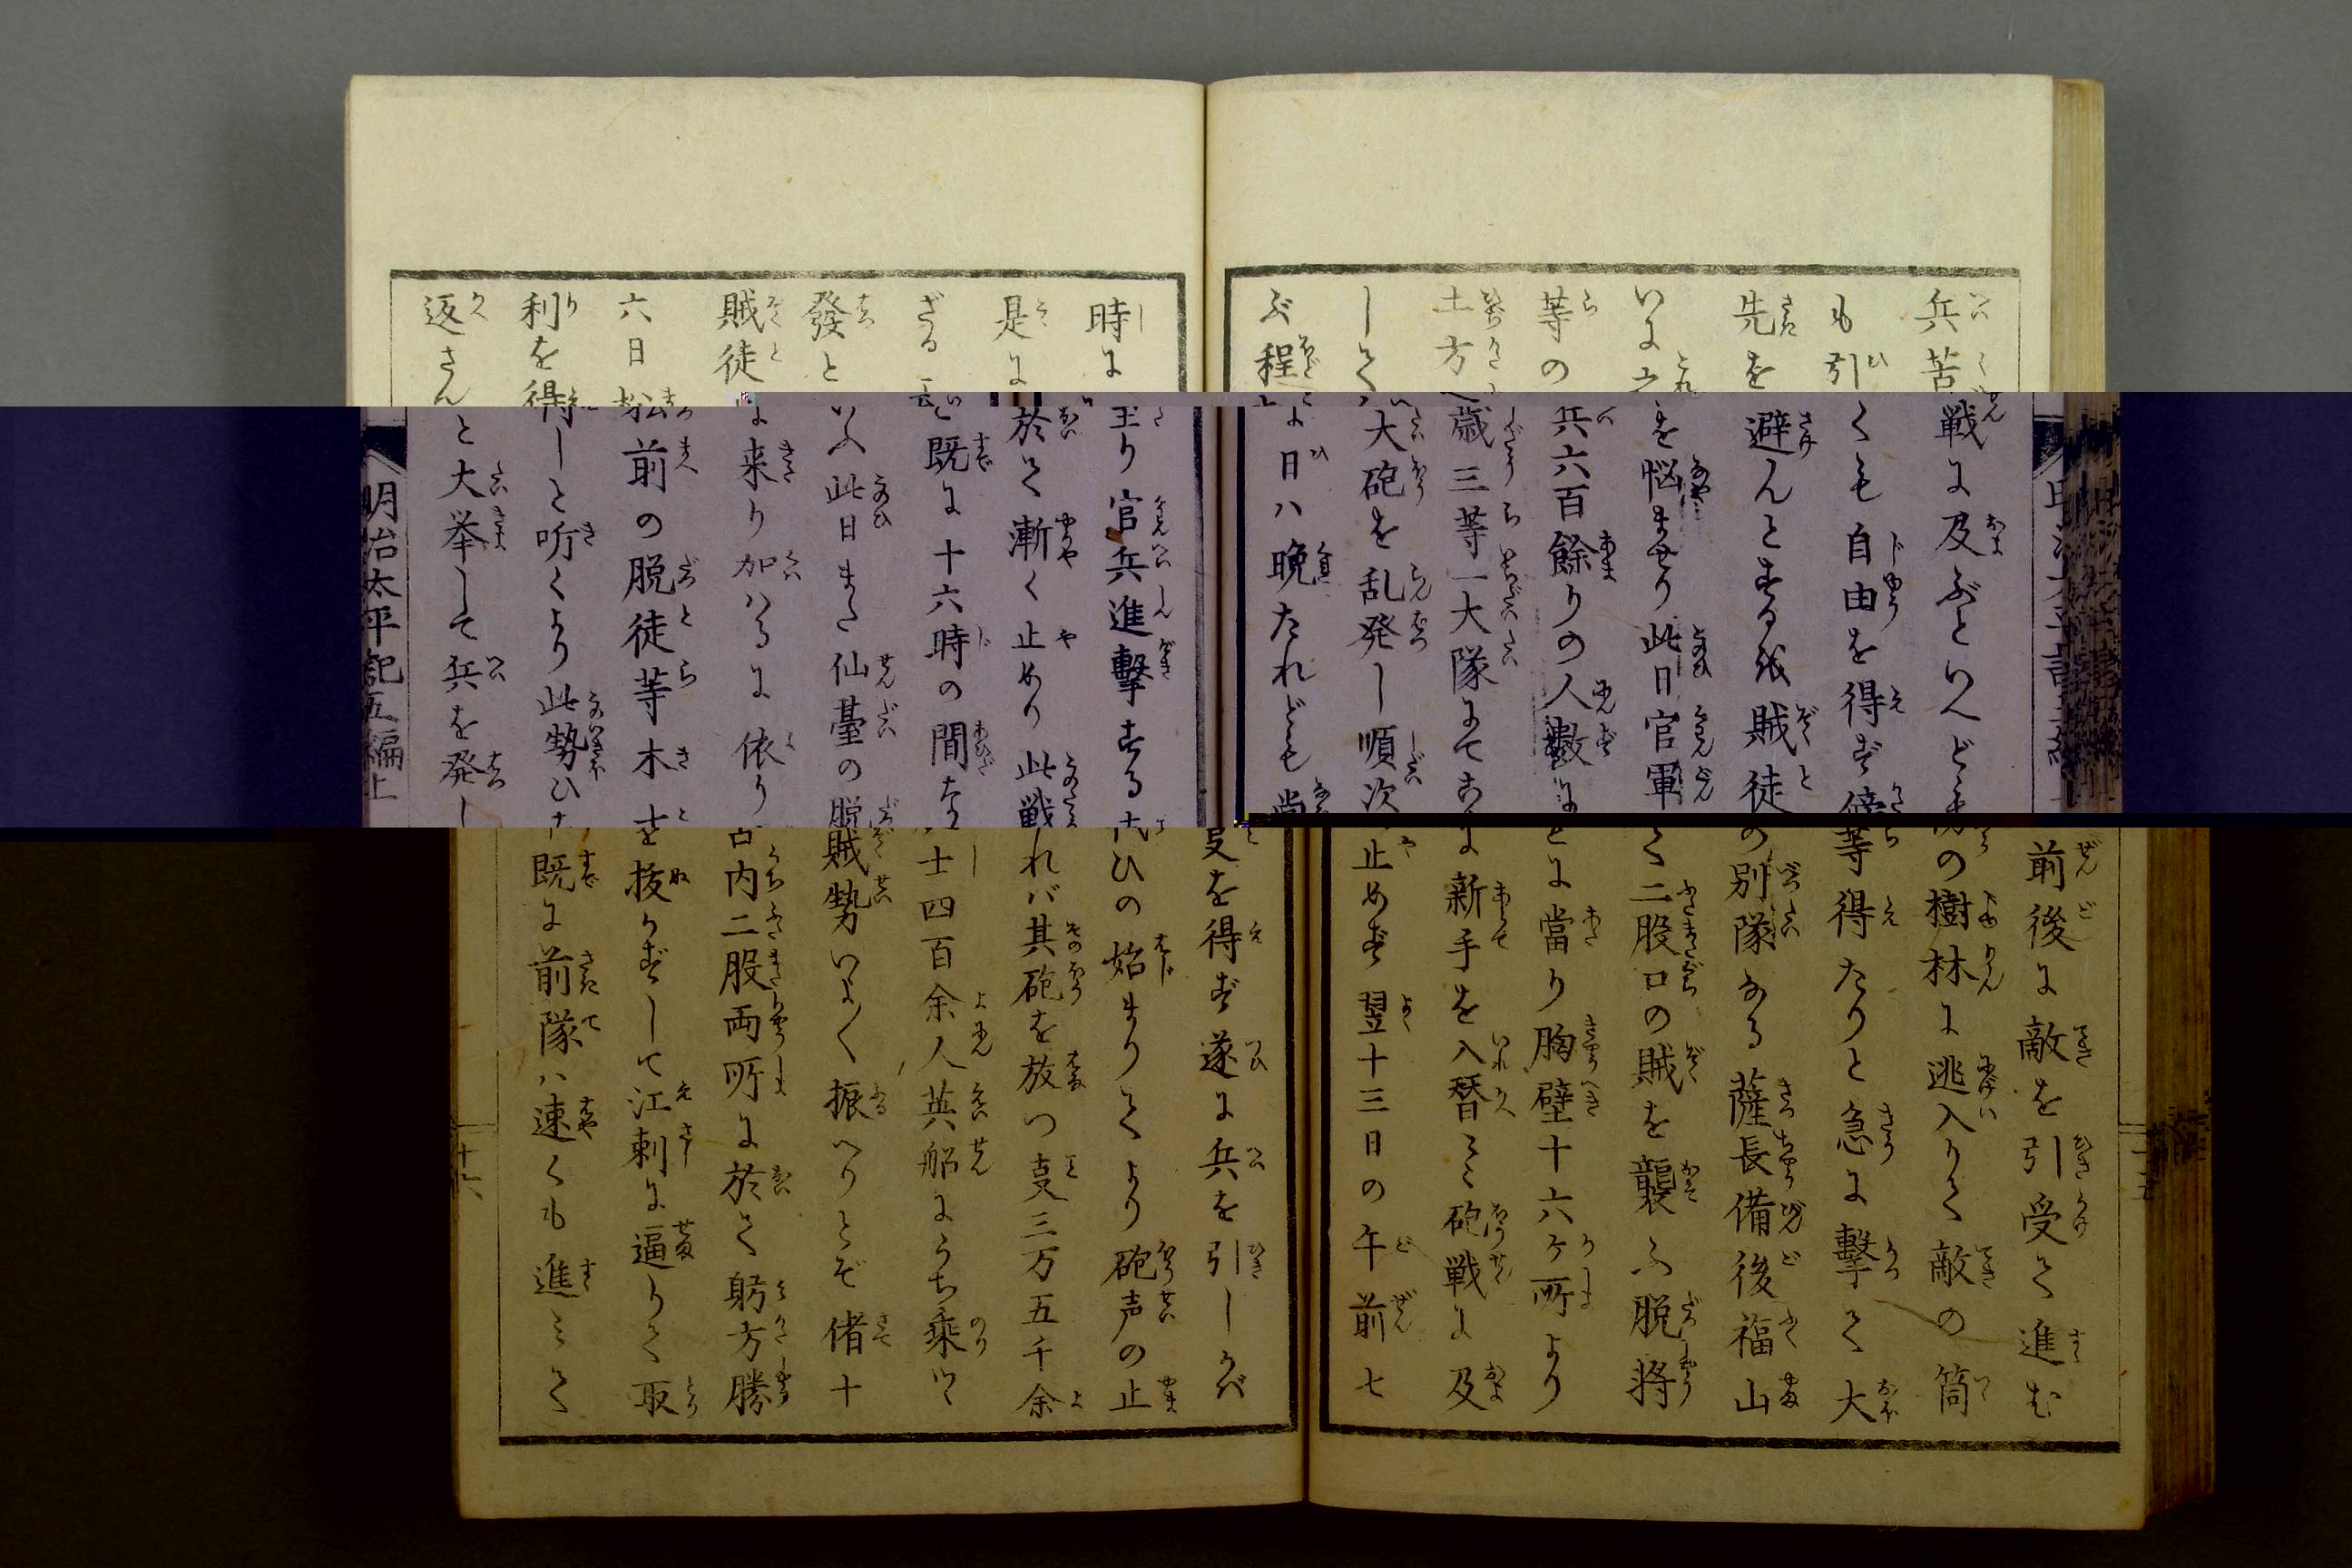 兵苦戦に及ぶといへども前後に敵を引受て進む
も引くも自由を得ず傍の樹林に逃入りて敵の筒
先を避んとする哉賊徒等得たりと急に撃て大
いに之を悩ませり此日官軍の別隊なる薩長備後福山
等の兵六百餘りの人数にて二股口の賊を襲ふ脱将
土方歳三等一大隊にてこに當り胸壁十六ケ所より
して大砲を乱発し順次に新手を入替〻砲戦に及
ぶ程に日ハ晩たれども尚止めず翌十三日の午前七
時に至り官兵進撃する支を得ず遂に兵を引しかバ
是に於て漸く止めり此戦ひの始まりてより砲声の止
ざる既に十六時の間なれバ其砲を放つ支三万五千余
發といふ此日また仙臺の脱士四百余人英船にうち乗ツヽ
賊徒に来り加ハるに依り賊勢いよ〳〵振へりとぞ偖十
六日松前の脱徒等木古内二股両所に於て躬方勝
利を得しと听くより此勢ひを抜かずして江刺に逼りて取
返さんと大挙して兵を発し既に前隊ハ速くも進みて
明治太平記五編上
十六